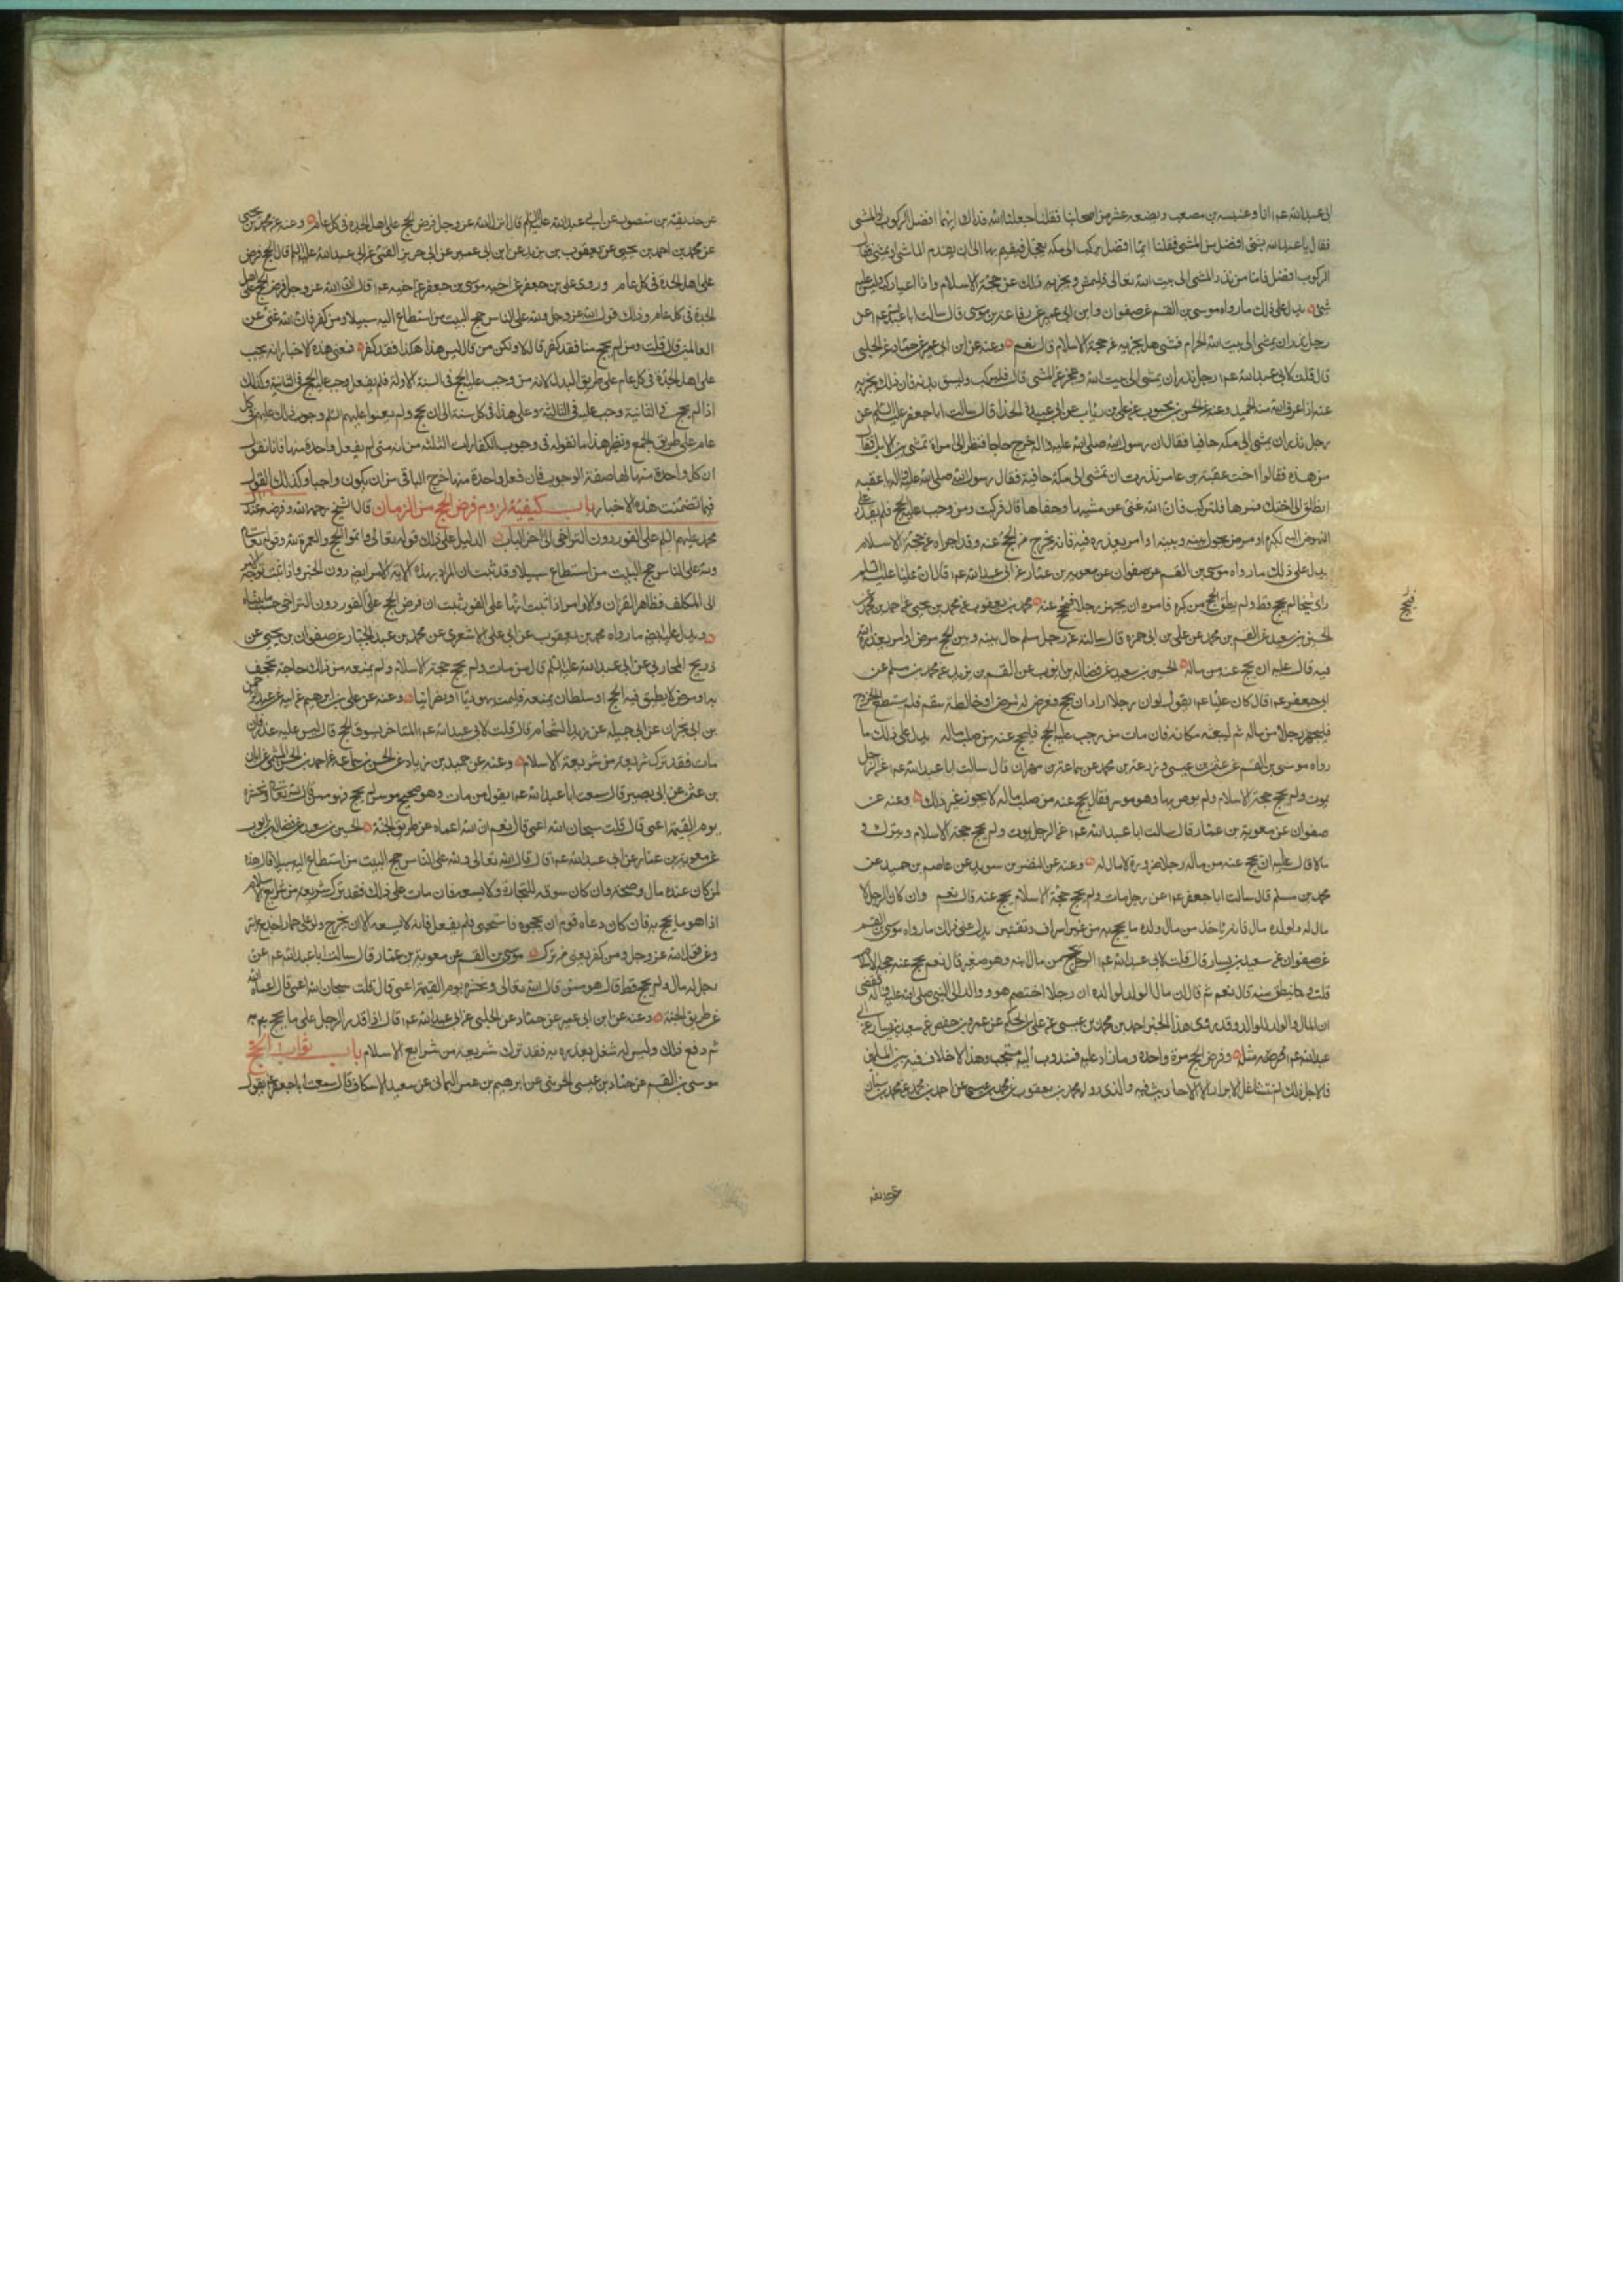 ابى عبدالله عم انا وعنبسه بن مصعب وبضعه عشر من اصحابنا فقلنا جعلنا الله فداك ايهما افضل الركوب او المشى
فقال ما عبد الله بشئ افضل من المشى فقلنا ايما افضل نركب الى مكه فنعجل فنقيم بها الى ان يقدم الماشى او نمشى فقال
الركوب افضل فاما من نذر المشى الى بيت الله تعالى فليمش ويجزيه ذلك عن حجة الاسلام واذا اعيا ركب وليس عليه
شئ يدل على ذلك ما رواه موسى بن القسم عن صفوان وابن ابى عمير عن رفاعه بن موسى قال سالت ابا عبدالله عم عن
رجل نذر ان يمشى الى بيت الله الحرام فمشى هل يجزيه عن حجة الاسلام قال نعم وعنه عن ابن ابى عمير عن حماد عن الحلبى
قال قلت لابى عبدالله عم رجل نذر ان يمشى الى بيت الله وعجز عن المشى قال فليركب وليسق بدنه فان ذلك يجزيه
عنه اذا عرف الله منه الجهد وعنه عن الحسن بن محبوب عن على بن رئاب عن ابى عبيدة الحذا قال سالت ابا جعفر عليه السلم عن
رجل نذر ان يمشى الى مكه حافيا فقال ان رسول الله صلى الله عليه واله خرج حاجا فنظر الى امراة تمشى بين الابل فقال
من هذه فقالوا اخت عقبة بن عامر نذرت ان تمشى الى مكة حافية فقال رسول الله صلى الله عليه واله يا عقبه
انطلق الى اختك فمرها فلتركب فان الله غنى عن مشيها وحفاها قال فركبت ومن وجب عليه الحج فلم يقدر على
النهوض اليه لكبره او مرض يحول بينه وبينه او امر يعذره فيه فانه يخرج من يحج عنه وقد اجزاه عن حجة الاسلام
يدل على ذلك ما رواه موسى بن القسم عن صفوان عن معويه بن عمار عن ابى عبدالله عم قال ان عليا عليه السلم
راى شيخا لم يحج قط ولم يطق الحج من كبره فامره ان يجهز رجلا فيحج عنه محمد بن يعقوب عن محمد بن يحيى عن احمد بن محمد عن
الحسين بن سعيد عن القسم بن محمد عن على بن ابى حمزه قال سالته عن رجل مسلم حال بينه وبين الحج مرض او امر يعذره الله
فيه قال عليه ان يحج عنه من ماله الحسين بن سعيد عن فضاله بن ايوب عن القسم بن بريد عن محمد بن مسلم عن
ابى جعفر عم قال كان عليا عم يقول لو ان رجلا اراد ان يحج فعرض له مرض او خالطه سقم فلم يستطع الخروج
فليجهز رجلا من ماله ثم ليبعثه مكانه فان مات من وجب عليه الحج فليحج عنه من صلب ماله يدل على ذلك ما
رواه موسى بن القسم عن عثمن بن عيسى وزرعه بن محمد عن سماعة بن مهران قال سالت ابا عبدالله عم عن الرجل
يموت ولم يحج حجة الاسلام ولم يوص بها وهو موسر فقال يحج عنه من صلب ماله لا يجوز غير ذلك وعنه عن
صفوان عن معوية بن عمار قال سالت ابا عبدالله عم عن الرجل يموت ولم يحج حجة الاسلام ويترك
مالا قال عليه ان يحج عنه من ماله رجلا صرورة لا مال له وعنه عن النضر بن سويد عن عاصم بن حميد عن
محمد بن مسلم قال سالت ابا جعفر عم عن رجل مات ولم يحج حجة الاسلام يحج عنه قال نعم وان كان الرجل لا
مال له ولولده مال فانه ياخذ من مال ولده ما يحج به من غير اسراف وتقتير يدل على ذلك ما رواه موسى بن القسم
عن صفوان عن سعيد بن يسار قال قلت لابى عبدالله عم الرجل يحج من مال ابنه وهو صغير قال نعم يحج عنه حجة الاسلام
قلت وينفق منه قال نعم ثم قال ان مال الولد لوالده ان رجلا اختصم هو ووالده الى النبى صلى الله عليه واله فقضى
ان المال والولد للوالد وقد روى هذا الخبر احمد بن محمد بن عيسى عن على بن الحكم عن عمرو بن حفص عن سعيد بن يسار عن ابى
عبدالله عم مثله وفرض الحج مرة واحدة وما زاد عليه فمندوب اليه مستحب وهذا لا خلاف فيه بين المسلمين
فلاجل ذلك لم نتشاغل بايراد الاحاديث فيه والذى رواه محمد بن يعقوب عن محمد بن يحيى عن احمد بن محمد عن محمد بن سنان
فيحج
عن حذيفه
عن حذيفة بن منصور عن ابى عبدالله عليه السلم قال ان الله عز وجل فرض الحج على اهل الجدة فى كل عام وعنه عن محمد بن يحيى
عن محمد بن احمد بن يحيى عن يعقوب بن يزيد عن ابن ابى عمير عن ابى جرير القمى عن ابى عبدالله عليه السلم قال الحج فرض
على اهل الجدة فى كل عام وروى على بن جعفر عن اخيه موسى بن جعفر عم قال ان الله عز وجل فرض الحج على اهل
الجدة فى كل عام وذلك قول الله عز وجل ولله على الناس حج البيت من استطاع اليه سبيلا ومن كفر فان الله غنى عن
العالمين قال قلت ومن لم يحج منا فقد كفر قال لا ولكن من قال ليس هذا هكذا فقد كفر فمعنى هذه الاخبار انه يجب
على اهل الجدة فى كل عام على طريق البدل لانه من وجب عليه الحج فى السنة الاولة فلم يفعل وجب عليه الحج فى الثانية وكذلك
اذا لم يحج فى الثانية وجب عليه فى الثالثة وعلى هذا فى كل سنة الى ان يحج ولم يعنوا عليهم السلم وجوب ذلك عليهم فى كل
عام على طريق الجمع ونظير هذا ما نقوله فى وجوب الكفارات الثلث من انه متى لم يفعل واحدة منها فانا نقول
ان كل واحدة منها لها صفة الوجوب فان فعل واحدة منها خرج الباقى من ان يكون واجبا وكذلك القول
فيما تضمنت هذه الاخبار باب كيفية لزوم فرض الحج من الزمان قال الشيخ رحمه الله وفرضه عند ال
محمد عليهم السلم على الفور دون التراخى الى اخر الباب الدليل على ذلك قوله تعالى واتموا الحج والعمرة لله وقوله تعالى
ولله على الناس حج البيت من استطاع سبيلا وقد ثبت ان المراد بهذه الاية الامر ايضا دون الخبر واذا ثبت توجه الامر
الى المكلف فظاهر القران والاوامر اذا ثبت انها على الفور ثبت ان فرض الحج على الفور دون التراخى حسب ما بيناه
ويدل عليه ايضا ما رواه محمد بن يعقوب عن ابى على الاشعرى عن محمد بن عبد الجبار عن صفوان بن يحيى عن
ذريح المحاربى عن ابى عبدالله عليه السلم قال من مات ولم يحج حجة الاسلام ولم يمنعه من ذلك حاجة تجحف
به او مرض لا يطيق فيه الحج او سلطان يمنعه فليمت يهوديا او نصرانيا وعنه عن على بن ابرهيم عن ابيه عن عبد الرحمن
بن ابى نجران عن ابى جميله عن زيد الشحام قال قلت لابى عبدالله عم التاجر يسوف الحج قال ليس عليه عذر فان
مات فقد ترك شريعه من شريعة الاسلام وعنه عن حميد بن زياد عن الحسن بن سماعه عن احمد بن الحسن الميثمى عن ابان
بن عثمن عن ابى بصير قال سمعت ابا عبدالله عم يقول من مات وهو صحيح موسر لم يحج فهو ممن قال الله تعالى ونحشره
يوم القيمة اعمى قال قلت سبحان الله اعمى قال نعم ان الله اعماه عن طريق الجنة الحسين بن سعيد عن فضاله بن ايوب
عن معوية بن عمار عن ابى عبدالله عم قال قال الله تعالى ولله على الناس حج البيت من استطاع اليه سبيلا قال هذه
لمن كان عنده مال وصحة وان كان سوفه للتجارة فلا يسعه فان مات على ذلك فقد ترك شريعة من شرايع الاسلام
اذا هو ما يحج به فان كان دعاه قوم ان يحجوه فاستحيى فلم يفعل فانه لا يسعه الا ان يخرج ولو على حمار اجدع ابتر
وعن قول الله عز وجل ومن كفر يعنى من ترك موسى بن القسم عن معوية بن عمار قال سالت ابا عبدالله عم عن
رجل له مال ولم يحج قط قال هو ممن قال الله تعالى ونحشره يوم القيمة اعمى قال قلت سبحان الله اعمى قال اعماه الله
عن طريق الجنة وعنه عن ابن ابى عمير عن حماد عن الحلبى عن ابى عبدالله عم قال اذا قدر الرجل على ما يحج به
ثم دفع ذلك وليس له شغل يعذره به فقد ترك شريعه من شرايع الاسلام باب ثواب الحج
موسى بن القسم عن حماد بن عيسى عن ابرهيم بن عمر اليمانى عن سعيد الاسكاف قال سمعت ابا جعفر عم يقول